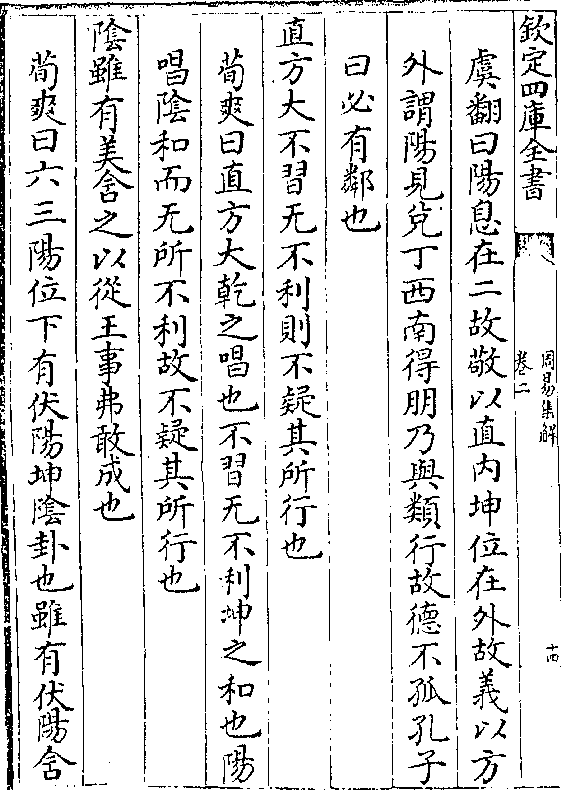 欽定四庫全書
周易集解
卷二
十四
虞翻曰陽息在二故敬以直内坤位在外故義以方
外謂陽見兌丁西南得朋乃與類行故德不孤孔子
曰必有鄰也
直方大不習无不利則不疑其所行也
荀爽曰直方大乾之唱也不習无不利坤之和也陽
唱陰和而无所不利故不疑其所行也
陰雖有美含之以從王事弗敢成也
荀爽曰六三陽位下有伏陽坤陰卦也雖有伏陽含